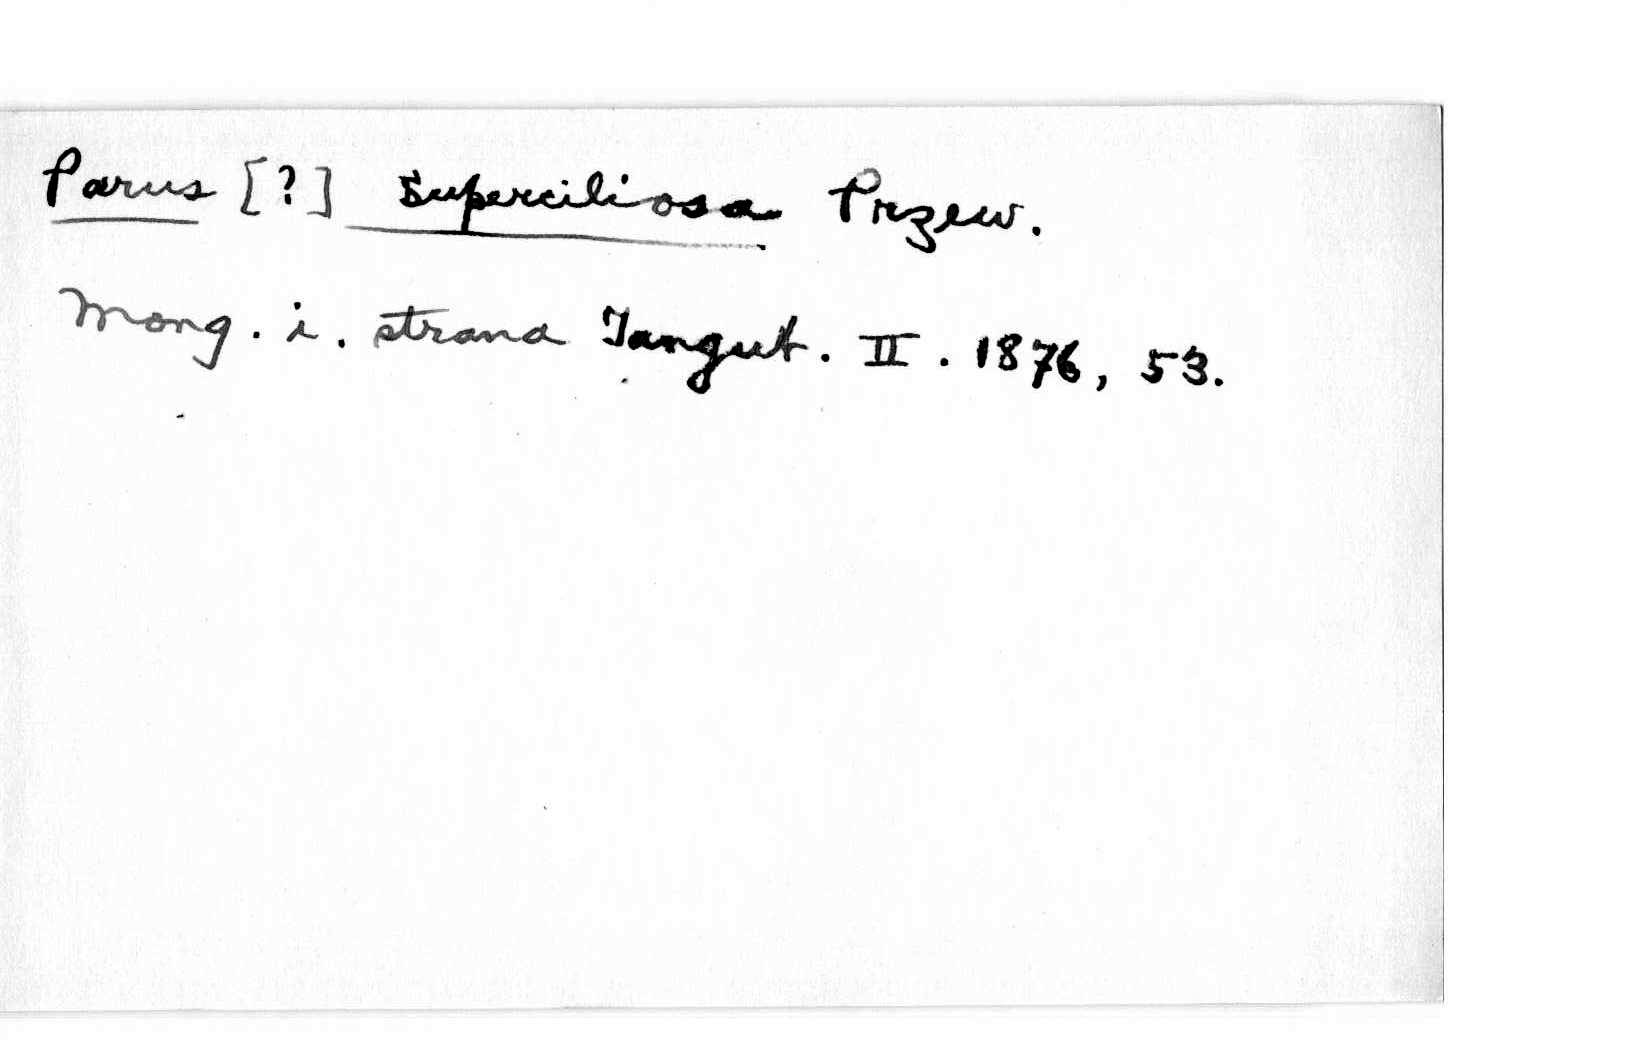 Parus [?] superciliosa Przew.
Mong. i. strana Tangut. II. 1876, 53.